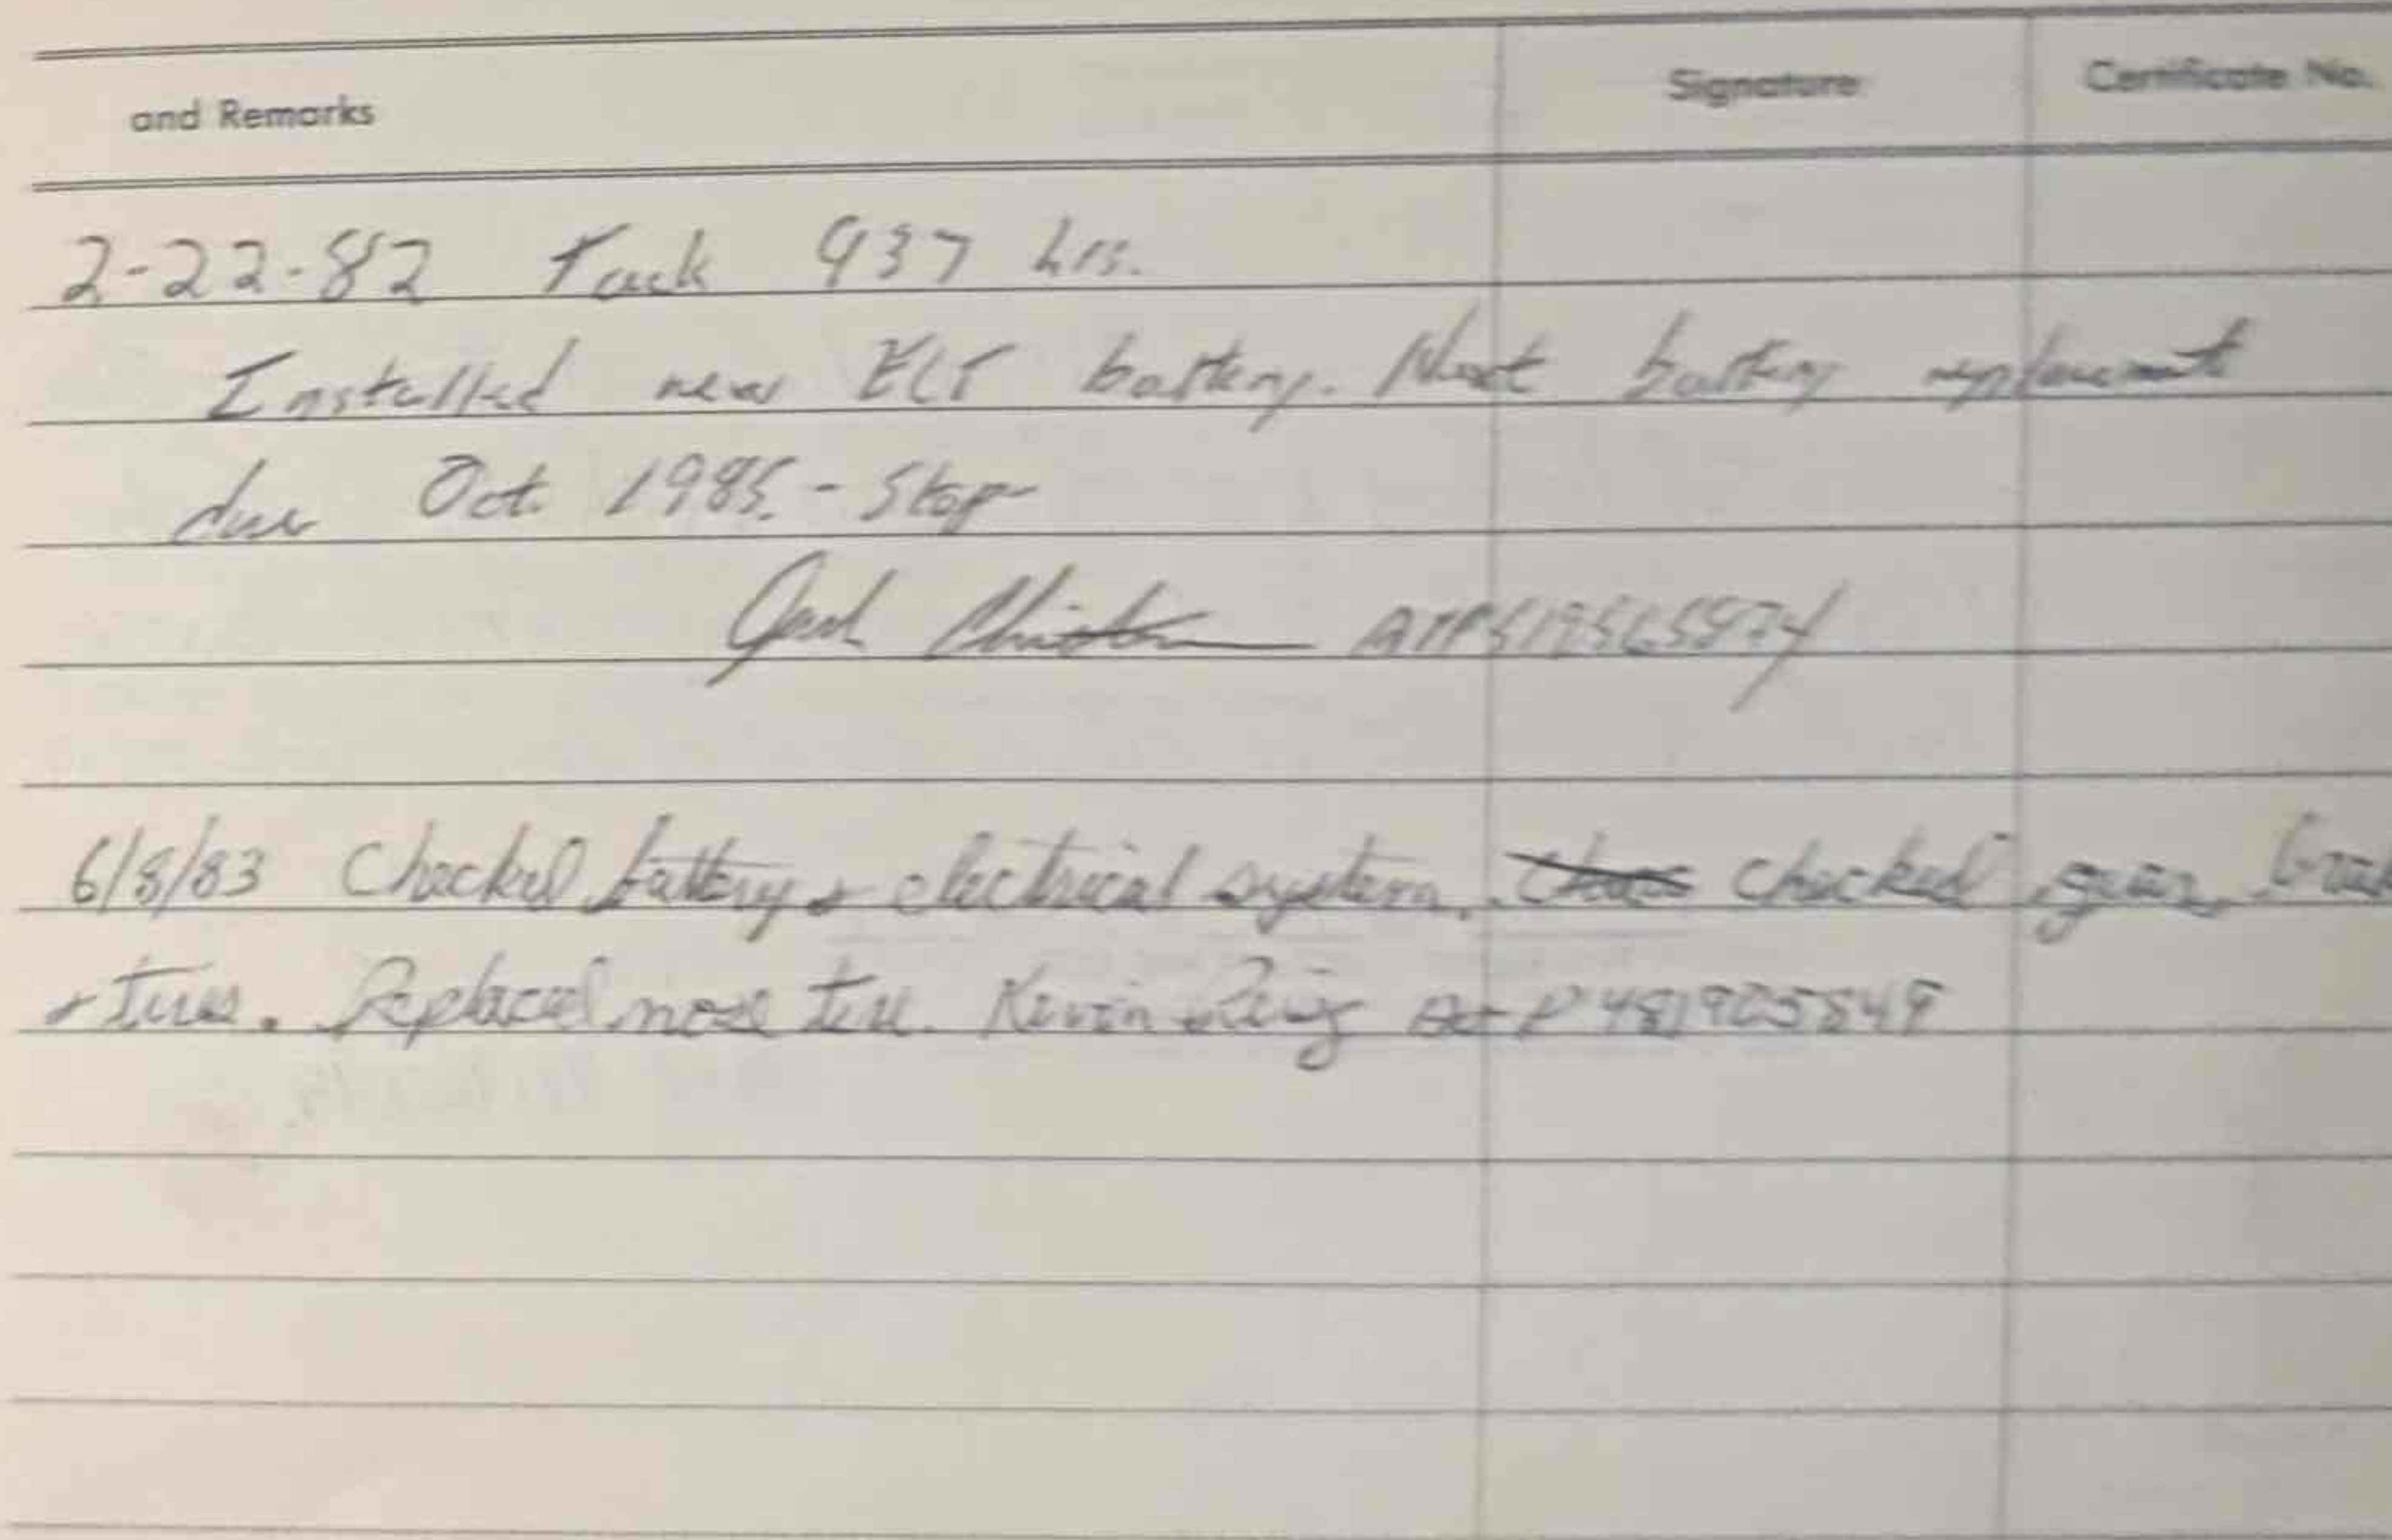 and Remarks Signature Certificate No.
2-22-82 Tach 937 hrs.
Installed new ELT battery. Next battery replacement
due Oct. 1985. - Stop -
Jack
6/8/83 Checked battery & electrical system. Checked gear,
& tires. Replaced nose tire. Kevin A&P 481925849